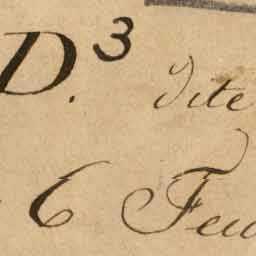 D.³ dite
6 Feu